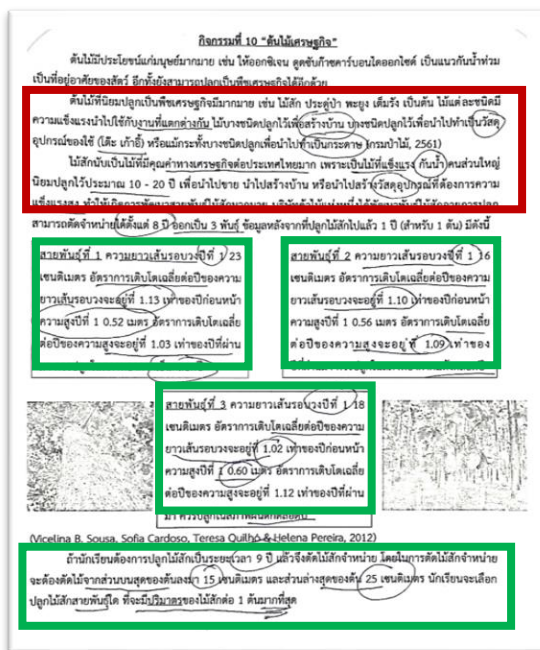 กิจกรรมที่ 10 "ต้นไม้เศรษฐกิจ"
ต้นไม้มีประโยชน์แก่มนุษย์มากมาย เช่น ให้ออกซิเจน ดูดซับก๊าซคาร์บอนไดออกไซด์ เป็นแนวกันน้ำท่วม
เป็นที่อยู่อาศัยของสัตว์ อีกทั้งยังสามารถปลูกเป็นพืชเศรษฐกิจได้อีกด้วย
ต้นไม้ที่นิยมปลูกเป็นพืชเศรษฐกิจมีมากมาย เช่น ไม้สัก ประดู่ป่า พะยูง เต็มรัง เป็นต้น ไม้แต่ละชนิดมี
ความแข็งแรงนำไปใช้กับงานที่แตกต่างกัน ไม้บางชนิดปลูกไว้เพื่อสร้างบ้าน บางชนิดปลูกไว้เพื่อนำไปทำเป็นวัสดุ
อุปกรณ์ของใช้ (โต๊ะ เก้าอี้) หรือแม้กระทั่งบางชนิดปลูกเพื่อนำไปทำเป็นกระดาษ (กรมป่าไม้, 2561)
ไม้สักนับเป็นไม้ที่มีคุณค่าทางเศรษฐกิจต่อประเทศไทยมาก เพราะเป็นไม้ที่แข็งแรง กันน้ำ คนส่วนใหญ่
นิยมปลูกไว้ประมาณ 10 - 20 ปี เพื่อนำไปขาย นำไปสร้างบ้าน หรือนำไปสร้างวัสดุอุปกรณ์ที่ต้องการความ
แข็งแรงสูง
สามารถตัดจำหน่ายได้ตั้งแต่ 8 ปี ออกเป็น 3 พันธุ์ ข้อมูลหลังจากที่ปลูกไม้สักไปแล้ว 1 ปี (สำหรับ 1 ต้น) มีดังนี้
สายพันธุ์ที่ 1 ความยาวเส้นรอบวงปีที่ 1 23
เซนติเมตร อัตราการเติบโตเฉลี่ยต่อปีของความ
ยาวเส้นรอบวงจะอยู่ที่ 1.13 เท่าของปีก่อนหน้า
ความสูงปีที่ 1 0.52 เมตร อัตราการเติบโตเฉลี่ย
ต่อปีของความสูงจะอยู่ที่ 1.03 เท่าของปีที่ผ่าน
สายพันธุ์ที่ 2 ความยาวเส้นรอบวงปีที่ 1 16
เซนติเมตร อัตราการเติบโตเฉลี่ยต่อปีของความ
ยาวเส้นรอบวงจะอยู่ที่ 1.10 เท่าของปีก่อนหน้า
ความสูงปีที่ 1 0.56 เมตร อัตราการเติบโตเฉลี่ย
ต่อปีของความสูงจะอยู่ที่ 1.09 เท่าของ
สายพันธุ์ที่ 3 ความยาวเส้นรอบวงปีที่ 1 18
เซนติเมตร อัตราการเติบโตเฉลี่ยต่อปีของความ
ยาวเส้นรอบวงจะอยู่ที่ 1.02 เท่าของปีก่อนหน้า
ความสูงปีที่ 1 0.60 เมตร อัตราการเติบโตเฉลี่ย
ต่อปีของความสูงจะอยู่ที่ 1.12 เท่าของปีที่ผ่าน
(Vicelina B. Sousa, Sofia Cardoso, Teresa Quilhó & Helena Pereira, 2012)
ถ้านักเรียนต้องการปลูกไม้สักเป็นระยะเวลา 9 ปี แล้วจึงตัดไม้สักจำหน่าย โดยในการตัดไม้สักจำหน่าย
จะต้องตัดไม้จากส่วนบนสุดของต้นลงมา 15 เซนติเมตร และส่วนล่างสุดของต้น 25 เซนติเมตร นักเรียนจะเลือก
ปลูกไม้สักสายพันธุ์ใด ที่จะมีปริมาตรของไม้สักต่อ 1 ต้นมากที่สุด